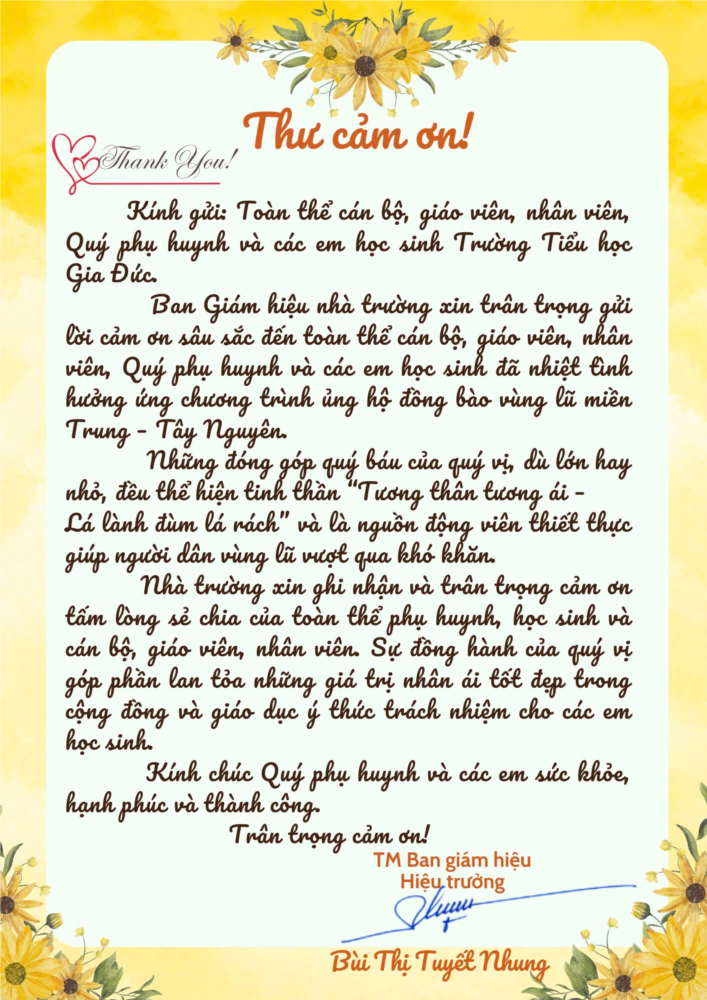 Thư cảm ơn!
Thank You!
Kính gửi: Toàn thể cán bộ, giáo viên, nhân viên,
Quý phụ huynh và các em học sinh Trường Tiểu học
Gia Đức.
Ban Giám hiệu nhà trường xin trân trọng gửi
lời cảm ơn sâu sắc đến toàn thể cán bộ, giáo viên, nhân
viên, Quý phụ huynh và các em học sinh đã nhiệt tình
hưởng ứng chương trình ủng hộ đồng bào vùng lũ miền
Trung - Tây Nguyên.
Những đóng góp quý báu của quý vị, dù lớn hay
nhỏ, đều thể hiện tinh thần “Tương thân tương ái -
Lá lành đùm lá rách” và là nguồn động viên thiết thực
giúp người dân vùng lũ vượt qua khó khăn.
Nhà trường xin ghi nhận và trân trọng cảm ơn
tấm lòng sẻ chia của toàn thể phụ huynh, học sinh và
cán bộ, giáo viên, nhân viên. Sự đồng hành của quý vị
góp phần lan tỏa những giá trị nhân ái tốt đẹp trong
cộng đồng và giáo dục ý thức trách nhiệm cho các em
học sinh.
Kính chúc Quý phụ huynh và các em sức khỏe,
hạnh phúc và thành công.
Trân trọng cảm ơn!
TM Ban giám hiệu
Hiệu trưởng
Bùi Thị Tuyết Nhung